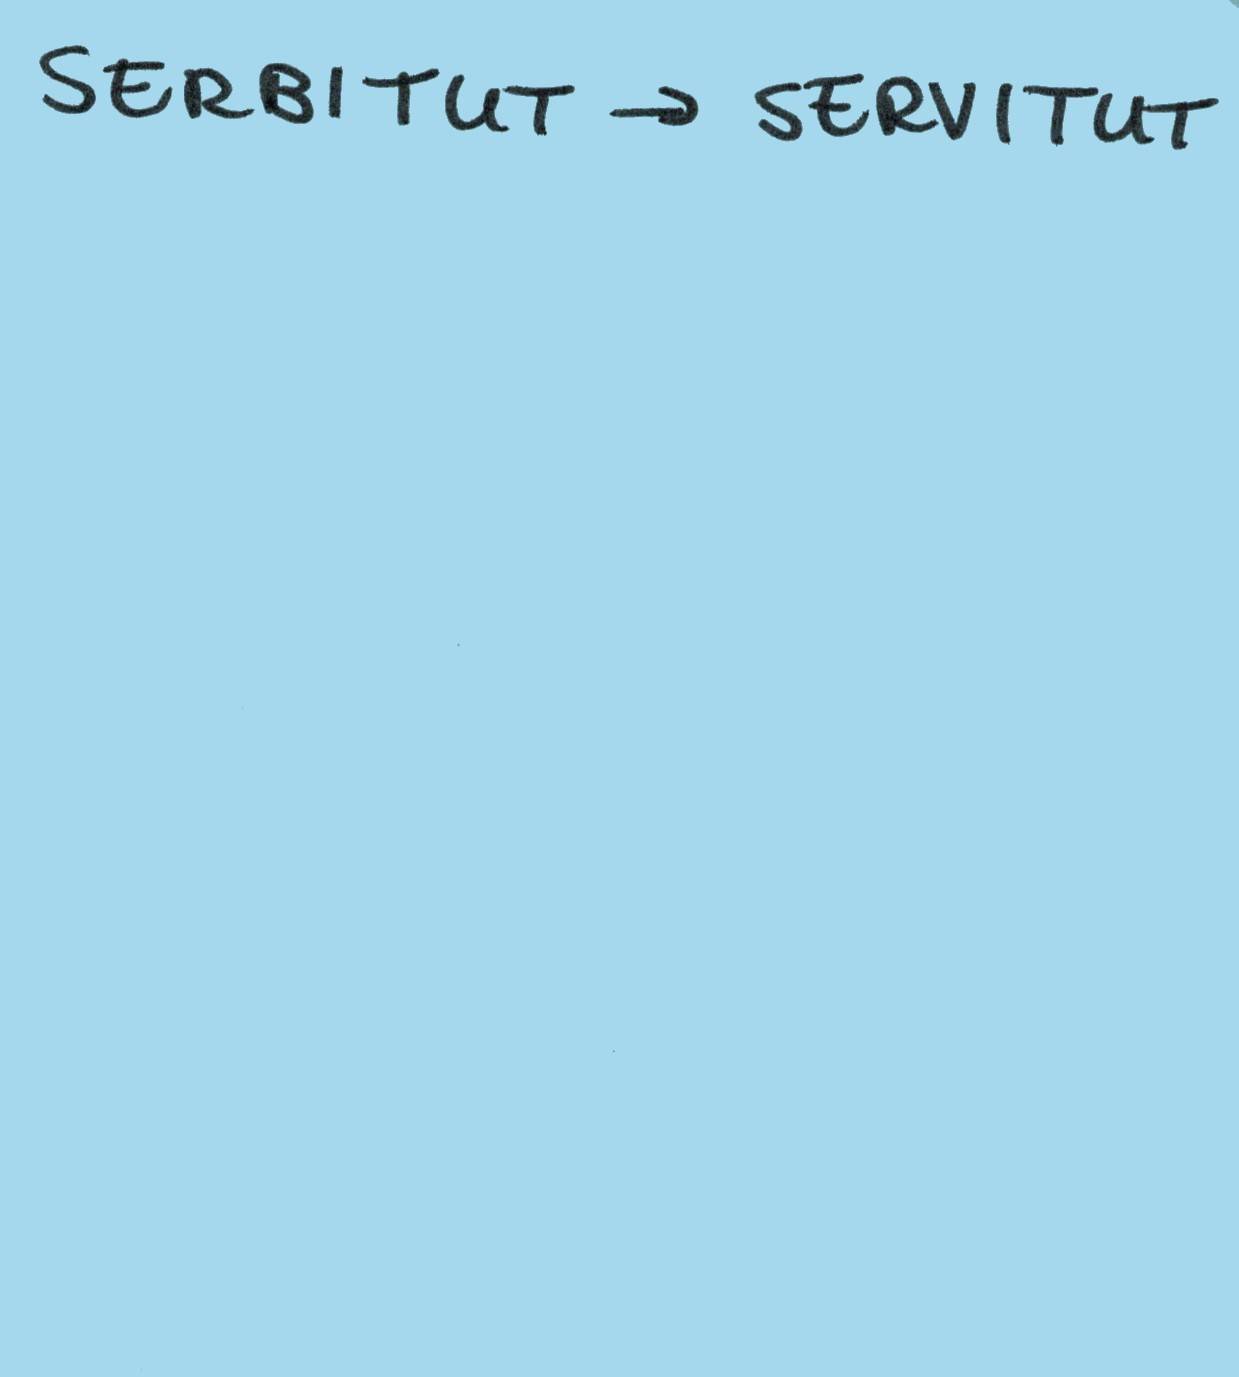 SERBITUT → SERVITUT